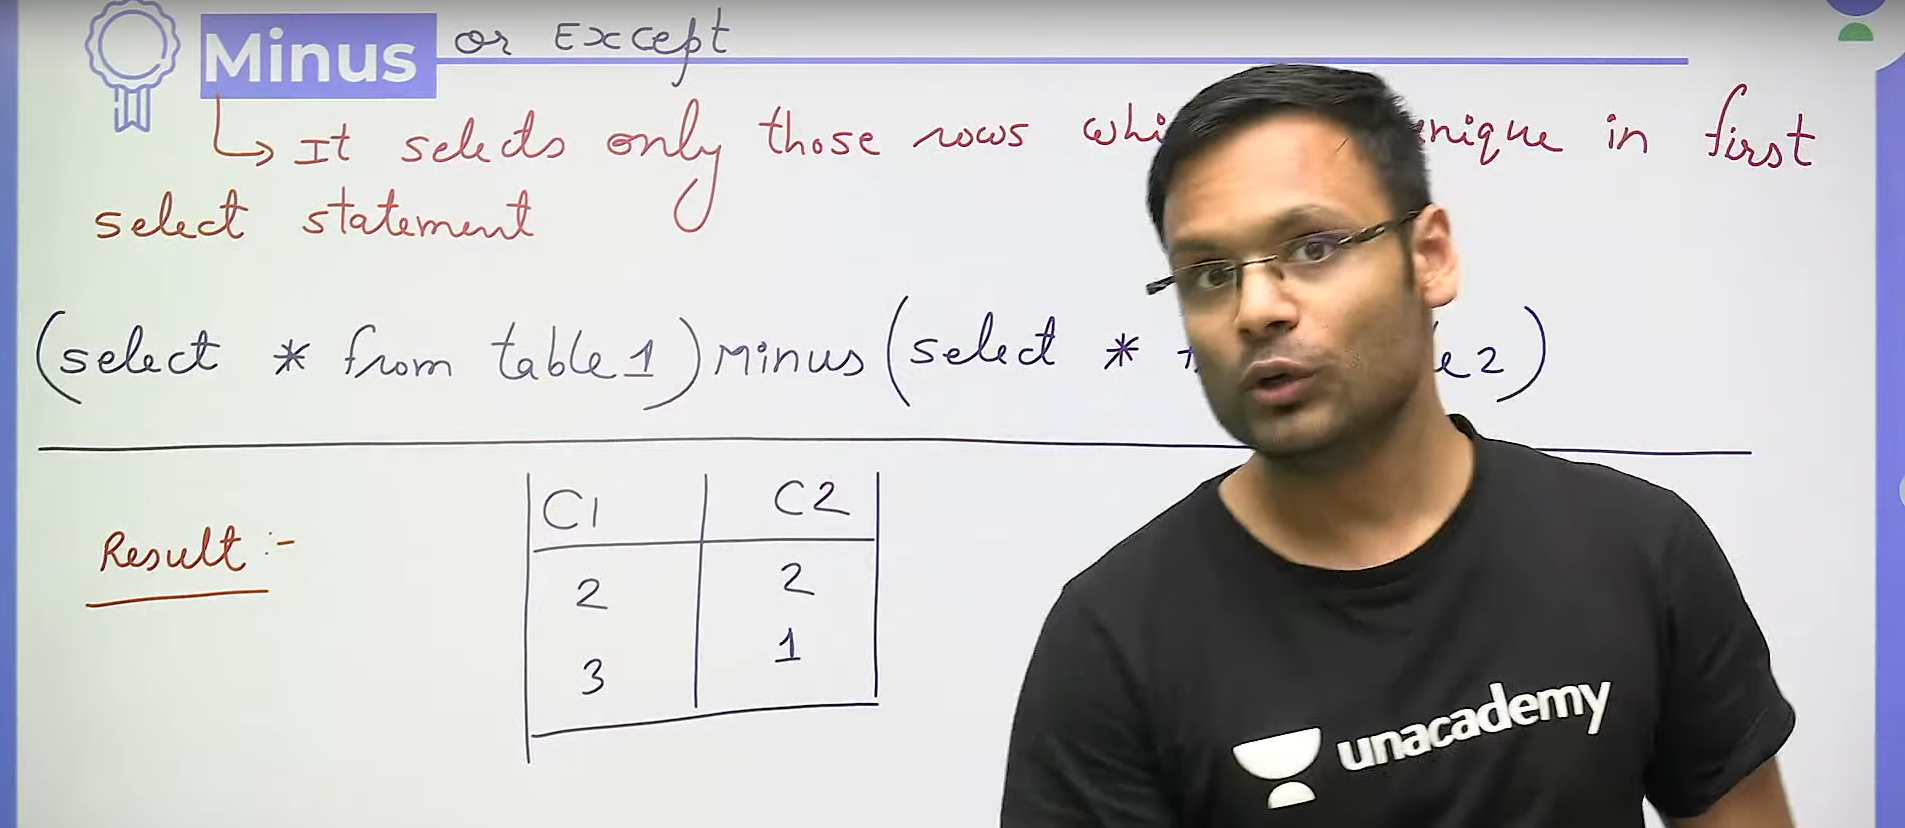 Minus or Except
↳ It selects only those rows whi nique in first
select statement
(select * from table1) Minus (select * e2)
Result :-
C1 C2
2 2
3 1
unacademy